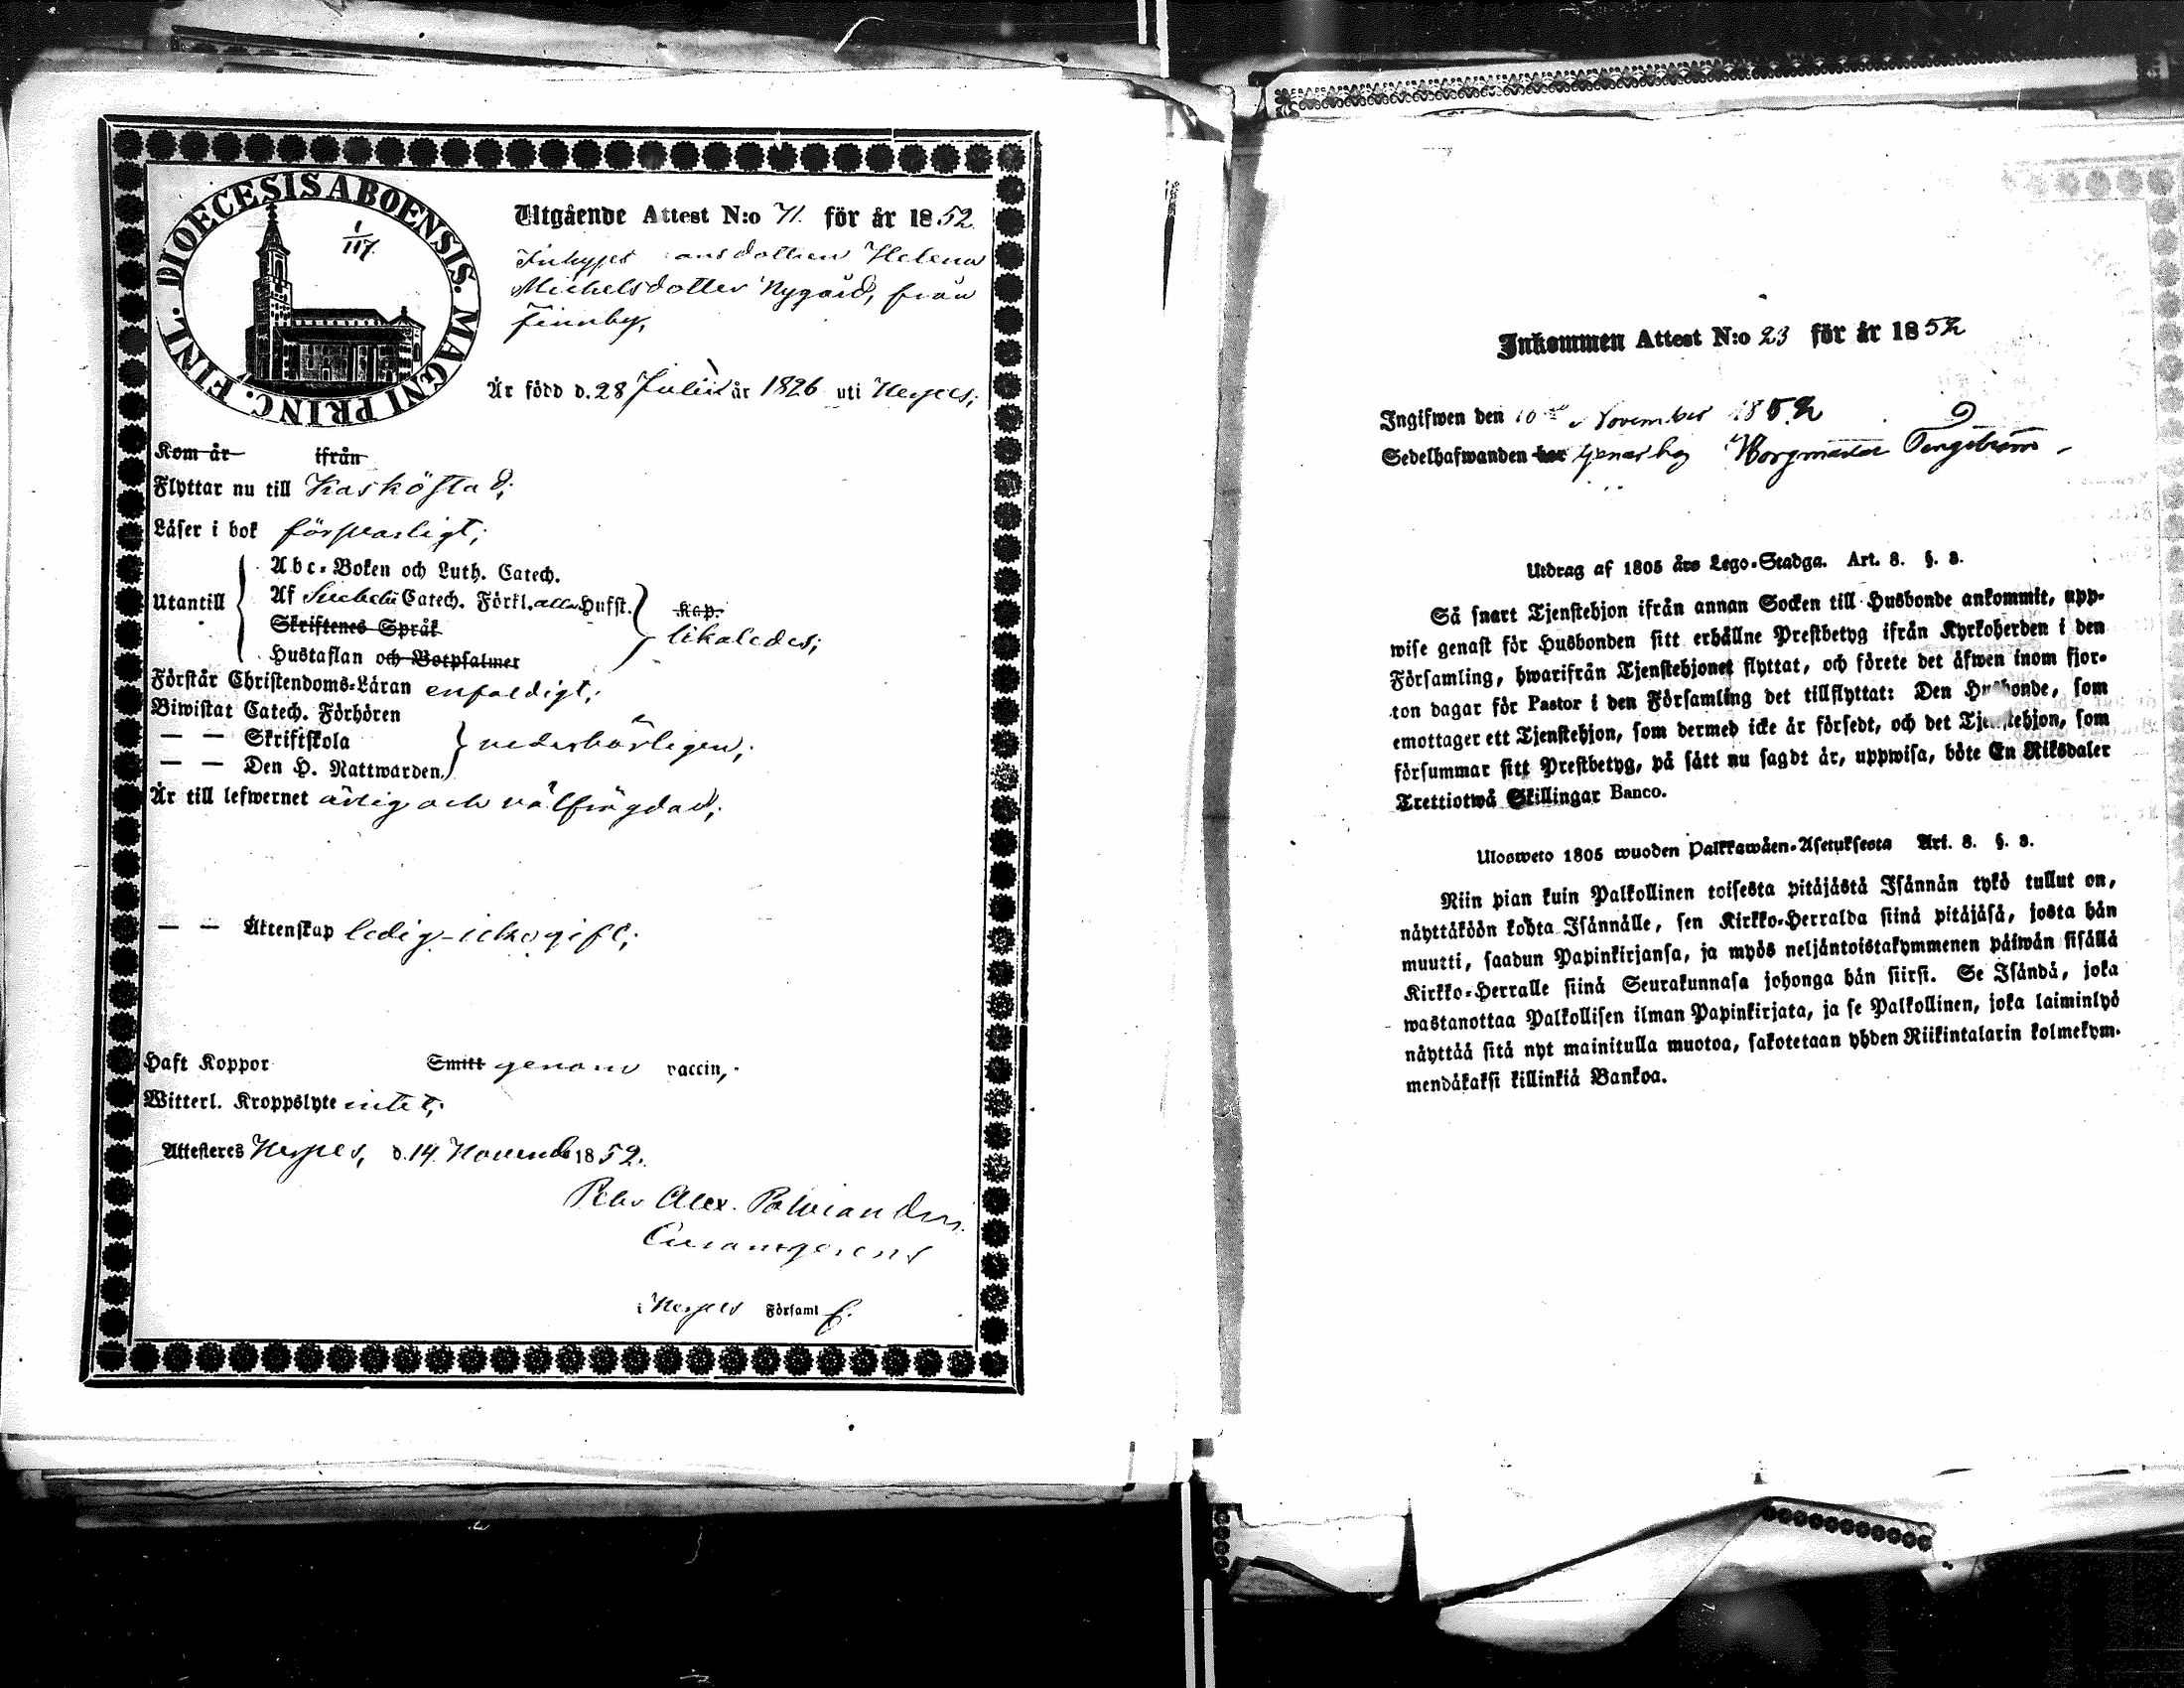 DIOECESIS ABOENSIS. MAGNI PRINC. FINL.
1
117.
Utgående Attest N:o 71. för år 1852.
Inhyses dottren Helena
Michelsdotter Nygård, från
Finnby,
Är född d. 28 Julii år 1826 uti Nerpes;
Kom år ifrån
Flyttar nu till Kaskö stad;
Läser i bok försvarligt;
Utantill
Abc-Boken och Luth. Catech.
Af Svebelii Catech. Förkl. alla Hufst.
Kap.
Skriftenes Språk
likaledes;
Hustaflan och Botpsalmer
Förstår Christendoms-Läran enfaldigt;
Biwistat Catech. Förhören
— — Skriftskola
vederbörligen;
— — Den H. Nattwarden
Är till lefwernet ärlig och välfrägdad;
— — Äktenskap ledig - icke gift;
Haft Koppor Smitt genom vaccin,
Witterl. Kroppslyte intet;
Attesteres Nerpes, d. 14 Novemb 1852.
Alex.
Curam gerens
i Nerpes Församl f.
Inkommen Attest N:o 23 för år 1852
Ingifwen den November 1852
Sedelhafwanden har hos Borgmästar Tengström
Utdrag af 1805 års Lego-Stadga. Art. 8. §. 3.
Så snart Tjenstehjon ifrån annan Socken till Husbonde ankommit, upp-
wise genast för Husbonden sitt erhållne Prestbetyg ifrån Kyrkoherden i den
Församling, hwarifrån Tjenstehjonet flyttat, och förete det äfwen inom fjor-
ton dagar för Pastor i den Församling det tillflyttat: Den Husbonde, som
emottager ett Tjenstehjon, som dermed icke är försedt, och det Tjenstehjon, som
försummar sitt Prestbetyg, på sätt nu sagdt är, uppwisa, böte En Riksdaler
Trettiotwå Skillingar Banco.
Ulosweto 1805 wuoden Palkkawäen-Asetuksesta Art. 8. §. 3.
Niin pian kuin Palkollinen toisesta pitäjästä Isännän tykö tullut on,
näyttäköön kohta Isännälle, sen Kirkko-Herralda siinä pitäjäsä, josta hän
muutti, saadun Papinkirjansa, ja myös neljäntoistakymmenen päiwän sisällä
Kirkko-Herralle siinä Seurakunnasa johonga hän siirsi. Se Isändä, joka
wastanottaa Palkollisen ilman Papinkirjata, ja se Palkollinen, joka laiminlyö
näyttää sitä nyt mainitulla muotoa, sakotetaan yhden Riikintalarin kolmekym-
mendäkaksi killinkiä Bankoa.